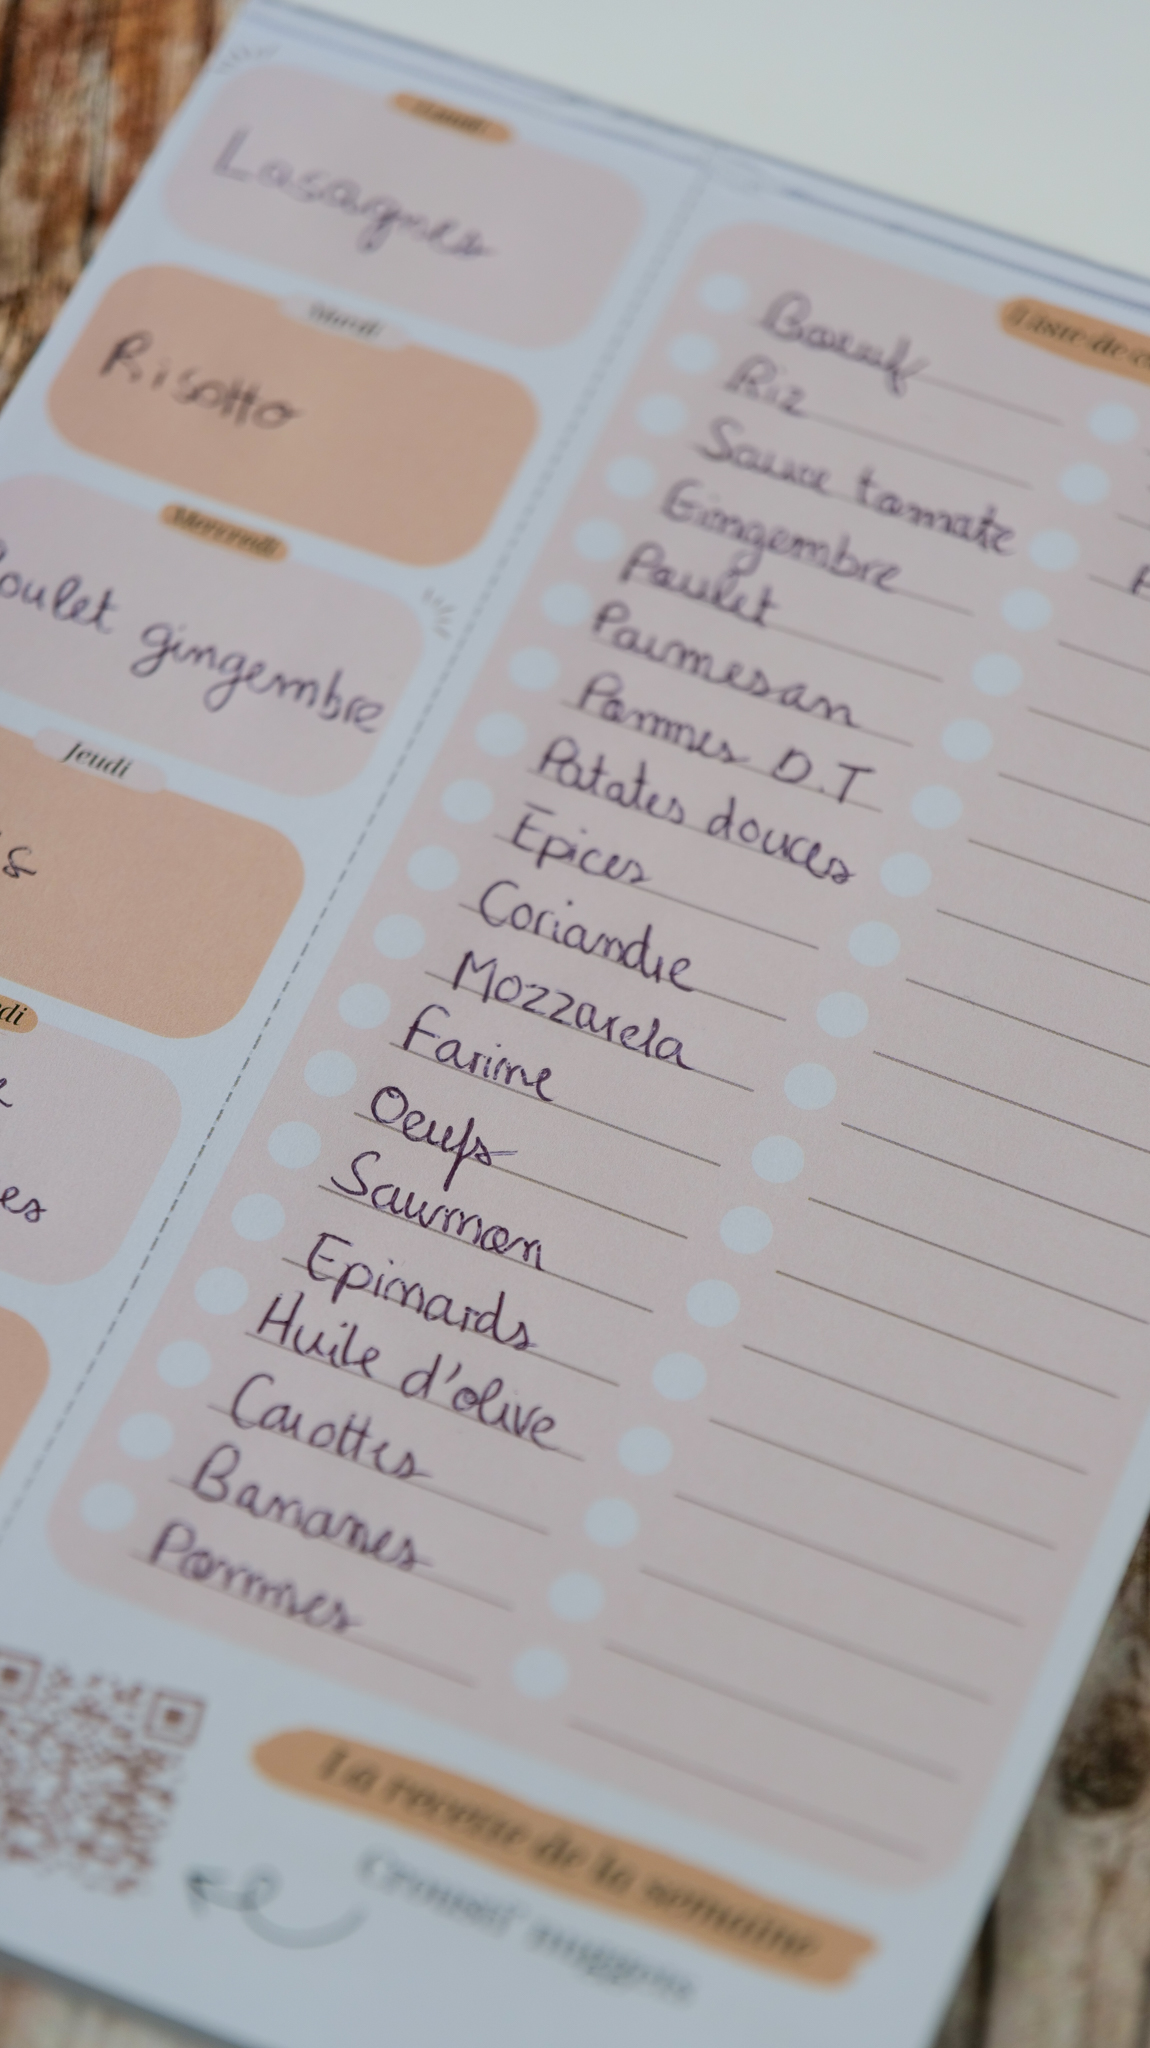 Lundi
Lasagnes
Mardi
Risotto
Mercredi
oulet gingembre
Jeudi
s
di
es
Liste de c
Boeuf
Riz
Sauce tomate
Gingembre
Poulet
Parmesan
Pommes D.T
Patates douces
Epices
Coriandre
Mozzarela
Farine
Oeufs
Saumon
Epinards
Huile d'olive
Carottes
Bananes
Pommes
La recette de la semaine